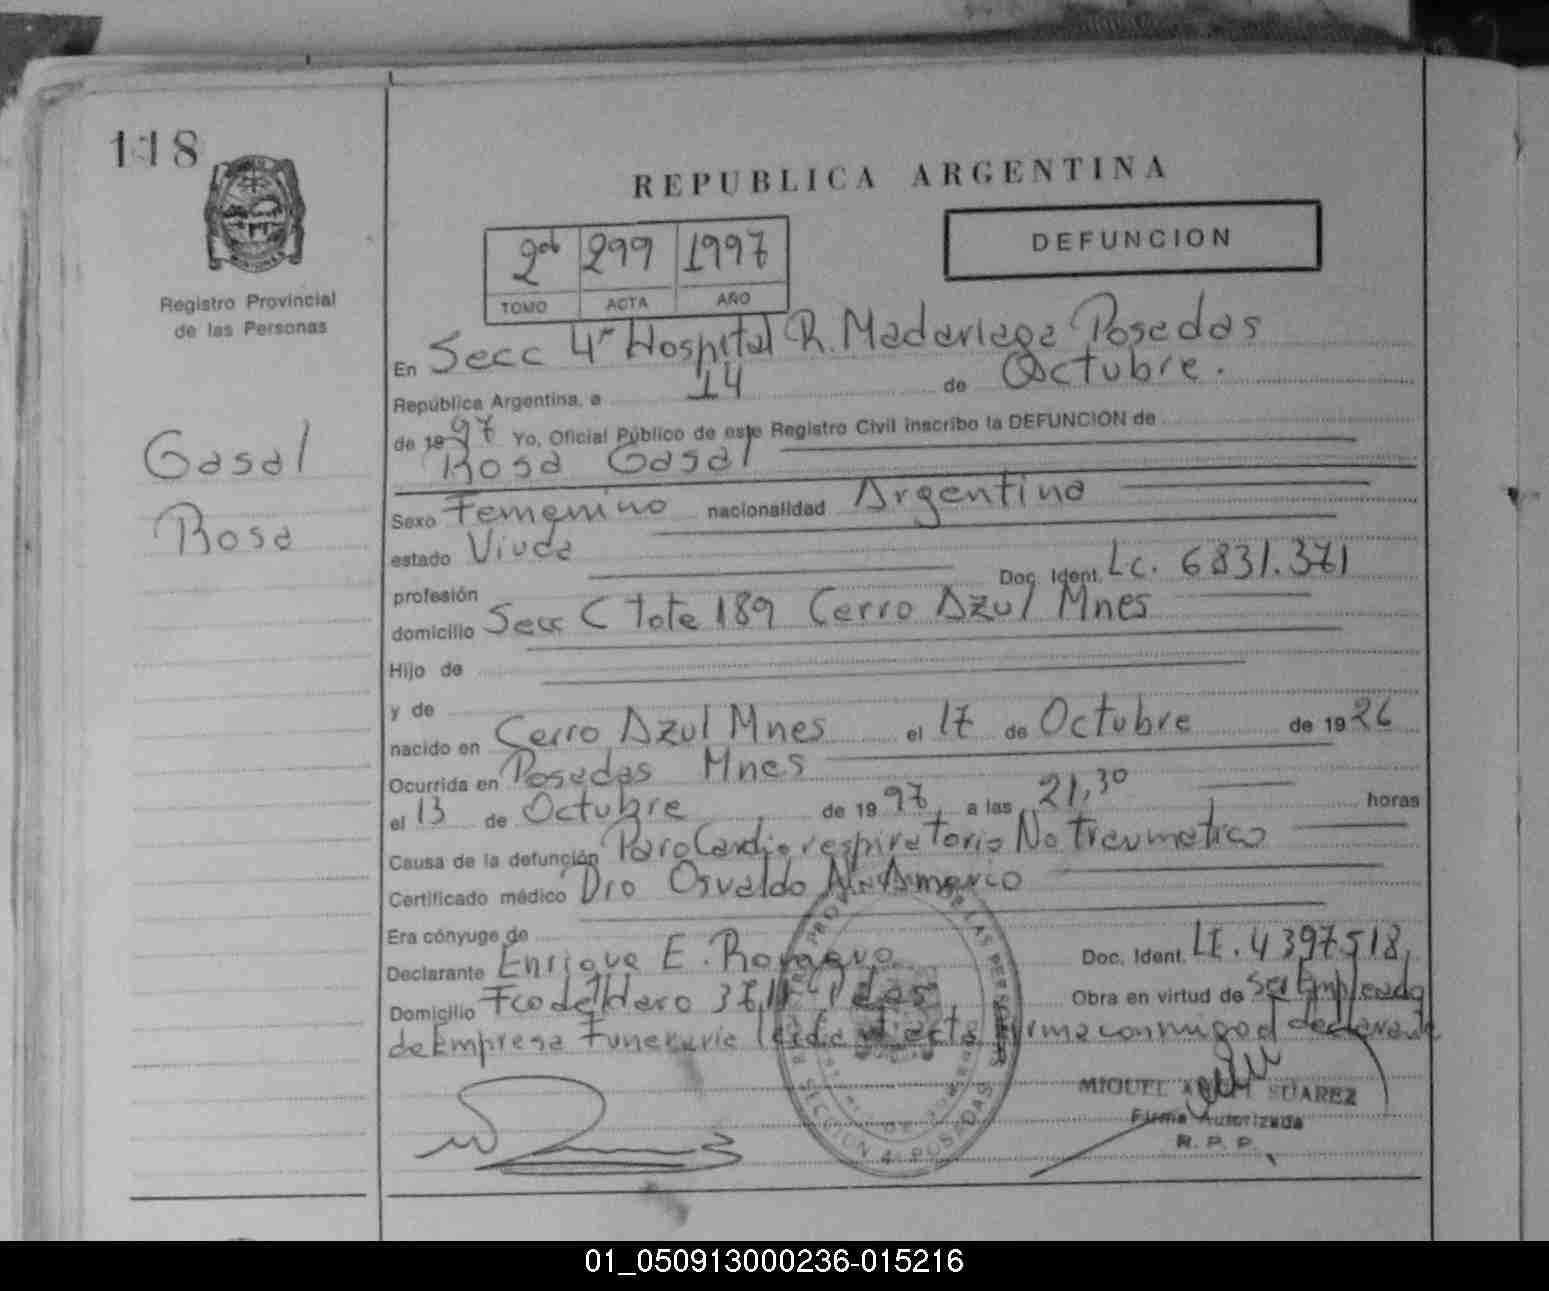 118
REPUBLICA ARGENTINA
2do 299 1997
TOMO ACTA AÑO
DEFUNCION
Registro Provincial
de las Personas
Gasal
Rosa
En Secc 4ª Hospital R. Madariaga Posadas
República Argentina, a 14 de Octubre.
de 1997 Yo, Oficial Público de este Registro Civil inscribo la DEFUNCION de
Rosa Gasal
Sexo Femenino nacionalidad Argentina
estado Viuda
profesión Doc. Ident. Lc. 6831.371
domicilio Secc C lote 189 Cerro Azul Mnes
Hijo de
y de
nacido en Cerro Azul Mnes el 17 de Octubre de 1926
Ocurrida en Posadas Mnes
el 13 de Octubre de 1997 a las 21,30 horas
Causa de la defunción Paro Cardiorespiratorio No Traumatico
Certificado médico Dro Osvaldo
Era cónyuge de
Declarante Enrique E. Doc. Ident. LE. 4397518,
Domicilio Fco de Haro Pdas Obra en virtud de ser Empleado
de Empresa Funeraria leida el acta firma conmigo el declarante
SECCION 4ª POSADAS
MIGUEL SUAREZ
Firma Autorizada
R. P. P.
01_050913000236-015216